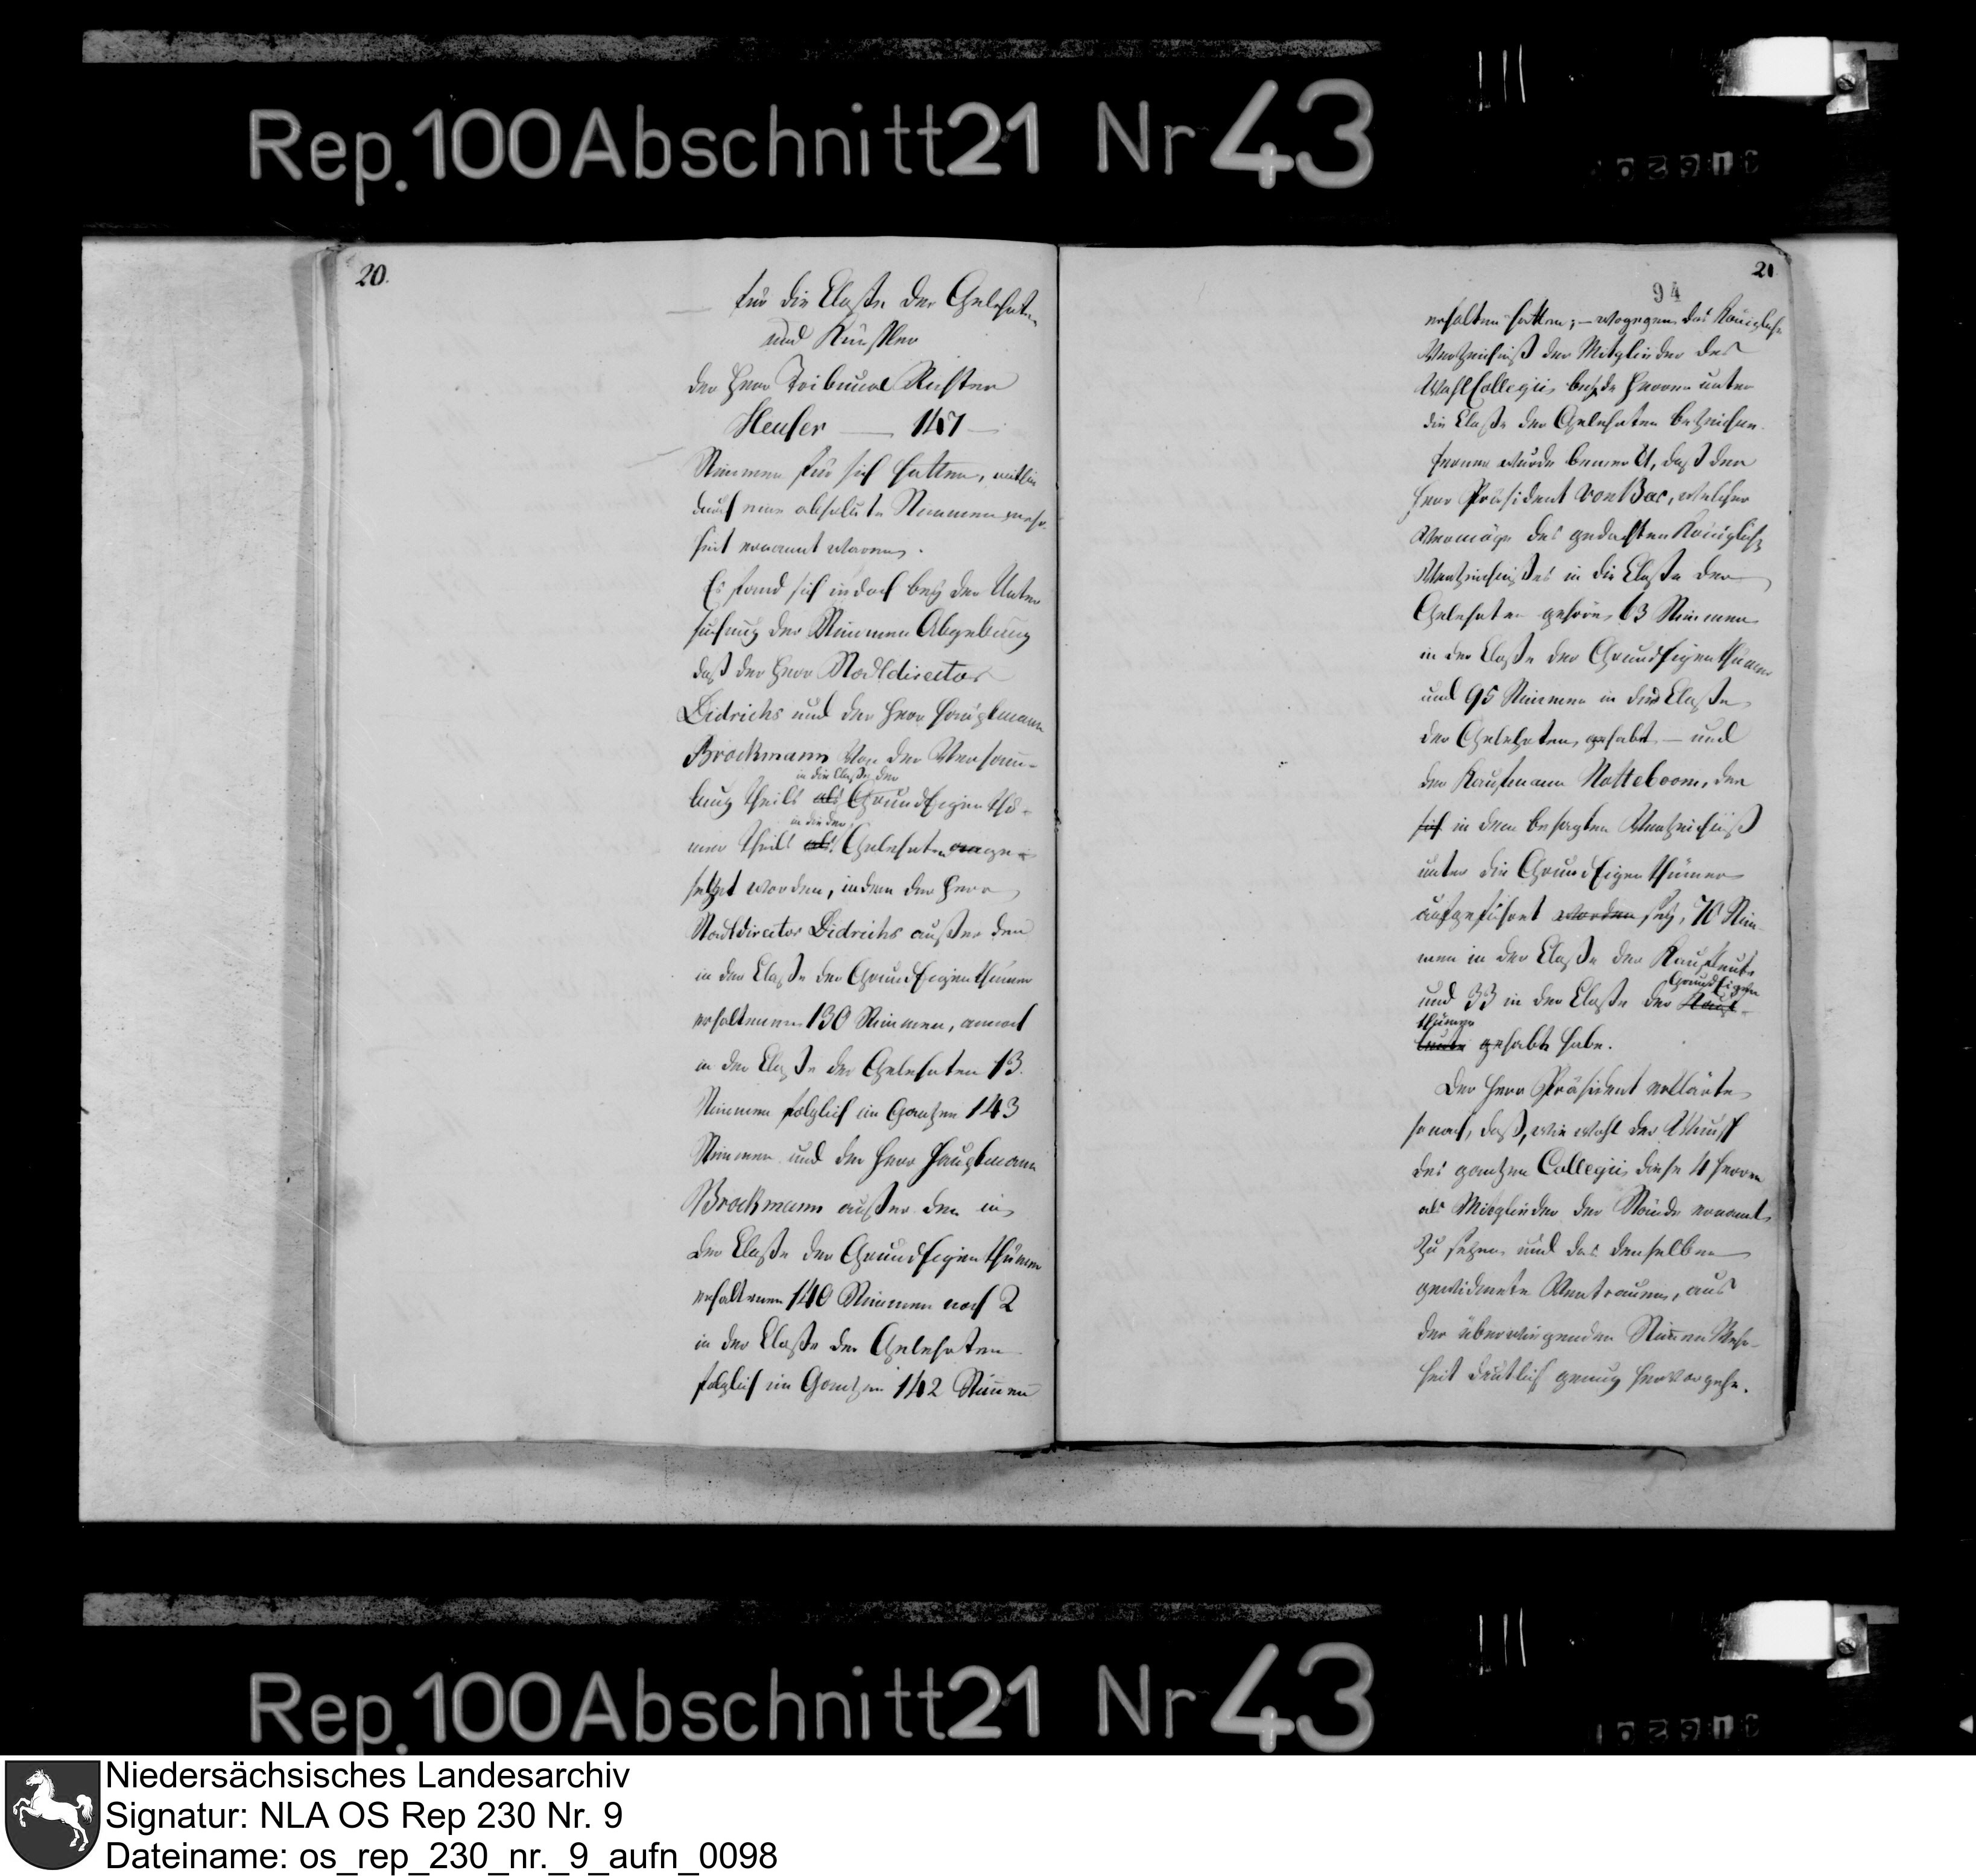 Rep. 100 Abschnitt 21 Nr 43
20.
für die Classe der Gelehrten
und Künstler
der Herr Tribunal Richter
Heuser — 147 —
Stimmen für sich hatten, mithin
durch eine absolute Stimmenmehr-
heit ernannt waren.
Es fand sich indoch bey der Unter
suchung der Stimmen Abgebung
daß der Herr Stadtdirector
Didrichs und der Herr Hauptmann
Brockmann von der Versamm-
in die Classe der
lung theils als GrundEigenthü-
in die der
mer theils als Gelehrten ange-
setzet worden, indem der Herr
Stadtdirector Didrichs außer den
in der Classe der GrundEigenthümer
erhaltenen 130 Stimmen, annoch
in der Classe der Gelehrten 13
Stimmen folglich im Gantzen 143
Stimmen und der Herr Hauptmann
Brockmann außer den in
der Classe der GrundEigenthümer
erhaltenen 140 Stimmen noch 2
in der Classe der Gelehrten
folglich im Gantzen 142 Stimen
21
94
erhalten hatten; — wogegen das Königliche
Verzeichniß der Mitglieder des
WahlCollegii beyde Herren unter
die Classe der Gelehrten bezeichne.
Ferner wurde bemerkt, daß der
Herr Präsident von Bar, welcher
Vermöge des gedachten Königlich
Verzeichnißes in die Classe der
Gelehrten gehöre, 63 Stimmen
in der Classe der GrundEigenthümer
und 95 Stimmen in der Classe
der Gelehrten gehabt — und
der Kaufmann Notteboom, der
sich in dem besagten Verzeichniß
unter die GrundEigenthümer
aufgeführt worden sey, 70 Stim-
men in der Classe der Kaufleute
GrundEigen
und 33 in der Classe der Kauf-
thümer
leute gehabt habe.
Der Herr Präsident erklärte
hernach, daß, wie wohl der Wunsch
des gantzen Collegii, diese 4 Herren
als Mitglieder der Stände ernannt
zu sehen, und das denselben
gewidmete Vertrauen, aus
der überwiegenden StimenMehr-
heit deutlich genug hervorgehe.
Rep. 100 Abschnitt 21 Nr 43
Niedersächsisches Landesarchiv
Signatur: NLA OS Rep 230 Nr. 9
Dateiname: os_rep_230_nr._9_aufn_0098